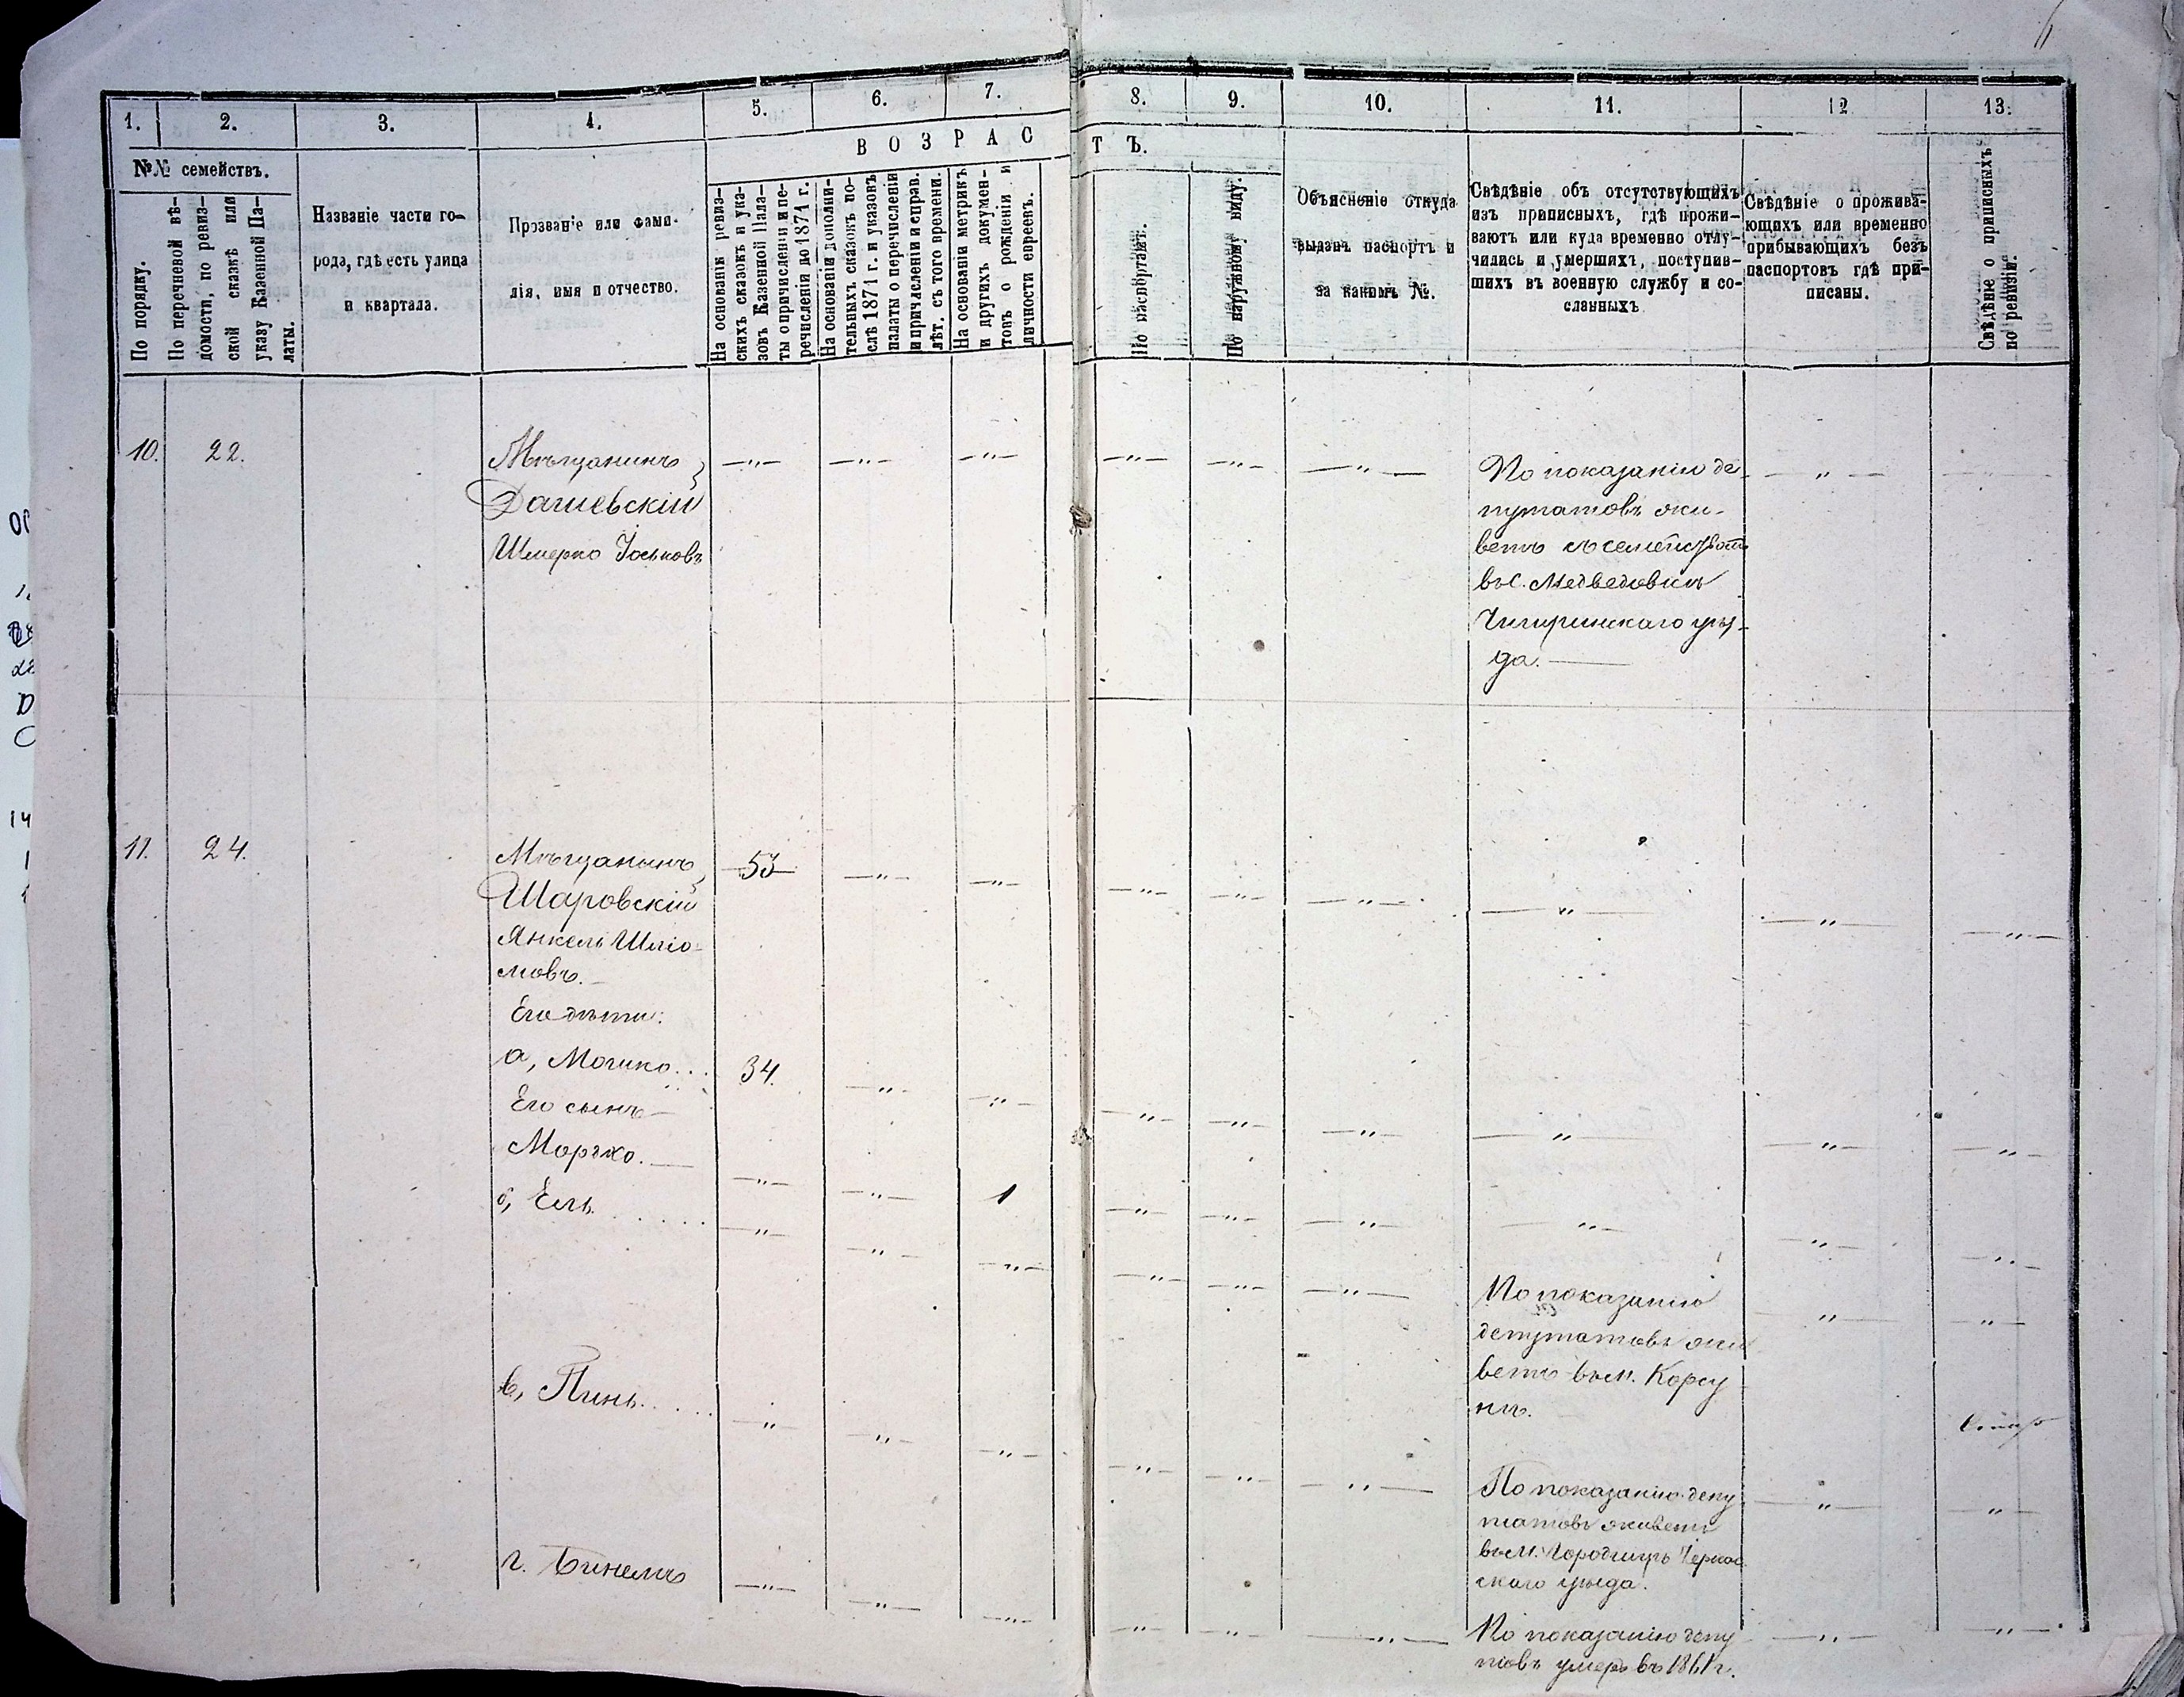 1. 2. 3. 4. 5. 6. 7. 8. 9. 10. 11. 12 13.
ВОЗРАСТЪ.
№№ семействъ.
По порядку.
По перечневой вѣ-
домости, по ревиз-
ской сказкѣ или
указу Казенной Па-
латы.
Названіе части го-
рода, гдѣ есть улица
и квартала.
Прозваніе или фами-
лія, имя и отчество.
На основаніи ревиз-
скихъ сказокъ и ука-
зовъ Казенной Пала-
ты о причисленіи и пе-
речисленіи до 1874 г.
На основаніи дополни-
тельныхъ сказокъ по-
слѣ 1874 г. и указовъ
палаты о перечисленіи
и причисленіи и справ.
лѣт. съ того времени.
На основаніи метрикъ
и другихъ докумен-
товъ о рожденіи и
личности евреевъ.
По паспортамъ.
По наружному виду.
Объясненіе откуда
выданъ паспортъ и
за какимъ №.
Свѣдѣніе объ отсутствующихъ
изъ приписныхъ, гдѣ прожи-
ваютъ или куда временно отлу-
чились и умершихъ, поступив-
шихъ въ военную службу и со-
сланныхъ
Свѣдѣніе о прожива-
ющихъ или временно
прибывающихъ безъ
паспортовъ гдѣ при-
писаны.
Свѣдѣніе о приписныхъ
по ревизіи.
10. 22.
Мѣщанинъ
Дашевскій
Шмерко Іоськовъ
По показанію де-
путатовъ жи-
ветъ съ семейством
въ с. Медведовкѣ
Чигиринскаго уѣз-
да.
11. 24.
Мѣщанинъ 53
Шаровскій
Янкель Шліо-
мовъ.
Его дѣти:
а, Мошко... 34.
Его сынъ
Моржко. 1
б, Ель.....
По показанію
депутатовъ жи
ветъ въ м. Корсу
нѣ.
в, Пинь....
По показанію депу
татовъ живетъ
въ м. Городищѣ Черкас
скаго уѣзда.
г. Бинемъ
По показанію депу
товъ умеръ въ 1861 г.